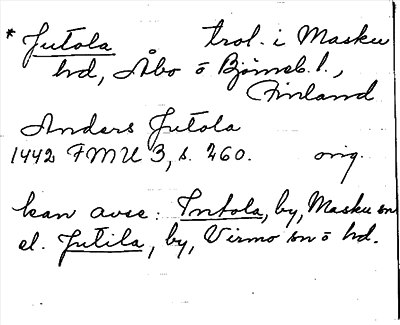 * Jutola trol. i Masku
hd, Åbo o Björneb. l.,
Finland
Anders Jutola
1442 FMU 3, s. 460. orig.
kan avse: Intola, by, Masku sn
el. Jutila, by, Virmo sn o hd.